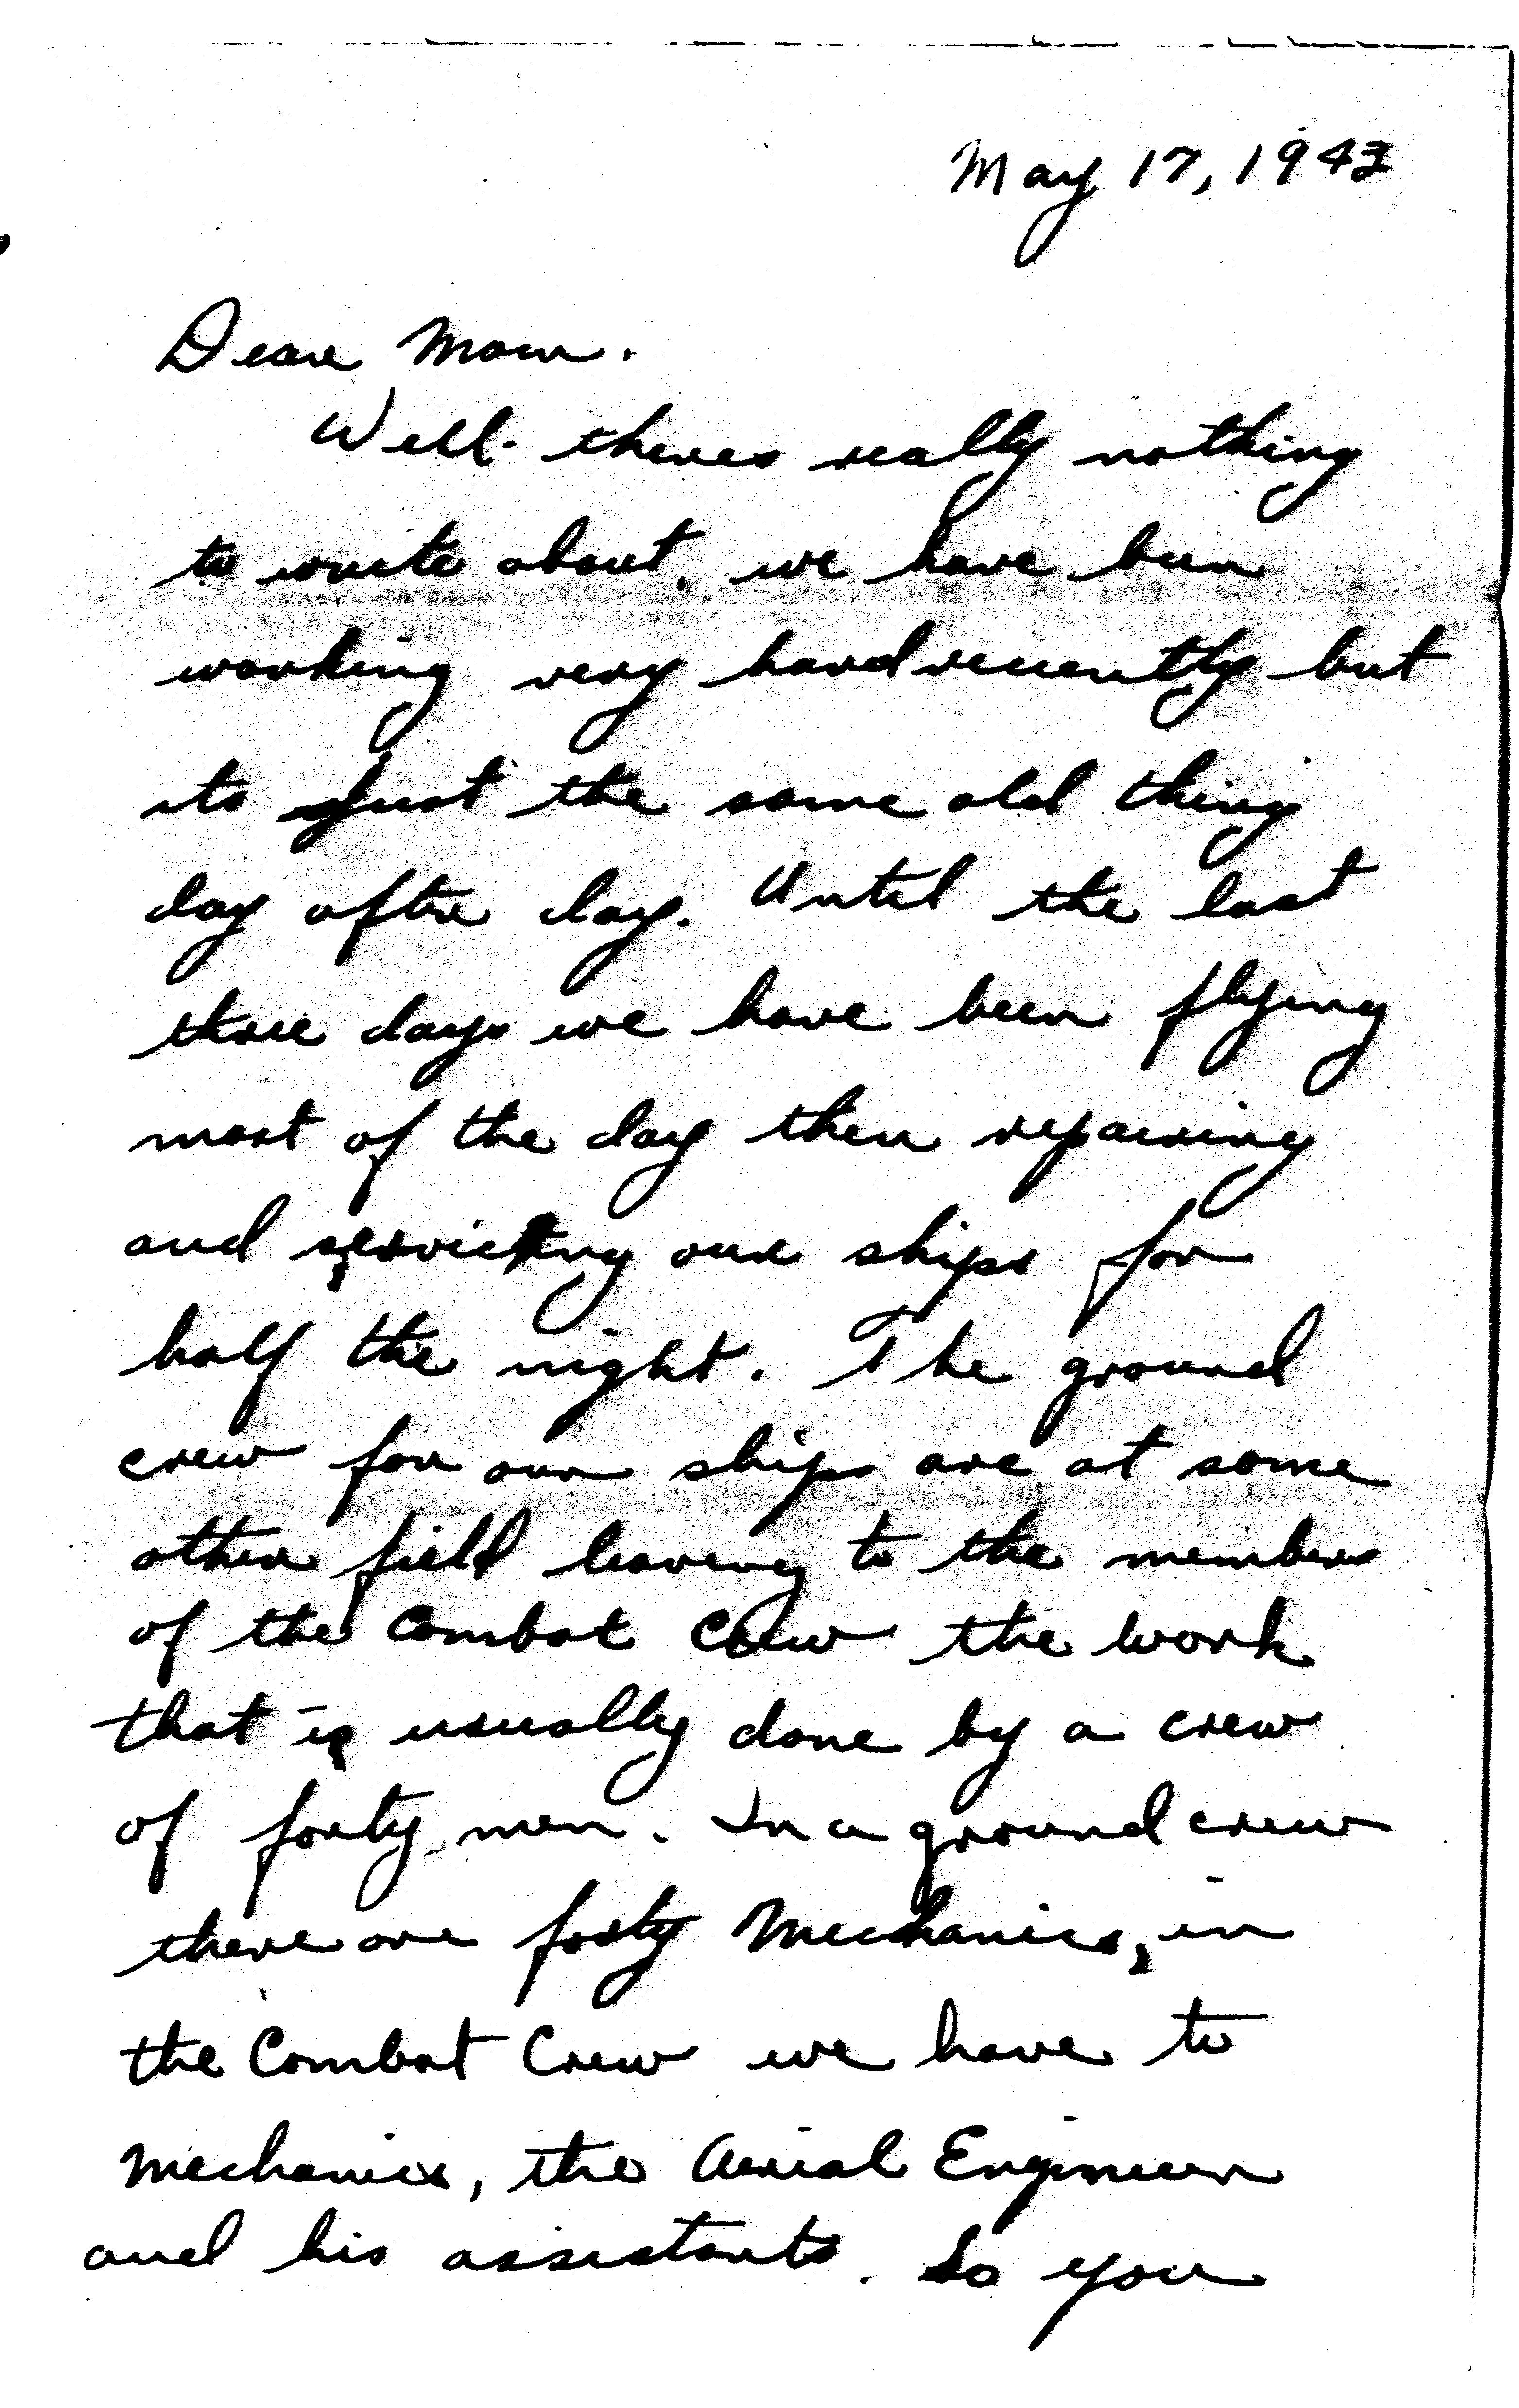 May 17, 1943
Dear Mom.
Well theres really nothing
to write about. we have been
working very hard recently but
its just the same old thing
day after day. Until the last
three days we have been flying
most of the day then repairing
and servicing our ships for
half the night. The ground
crew for our ships are at some
other field leaving to the members
of the Combat Crew the work
that is usually done by a crew
of forty men. In a ground crew
there are forty Mechanics, in
the Combat Crew we have to
Mechanics, the Aerial Engineer
and his assistants. So you